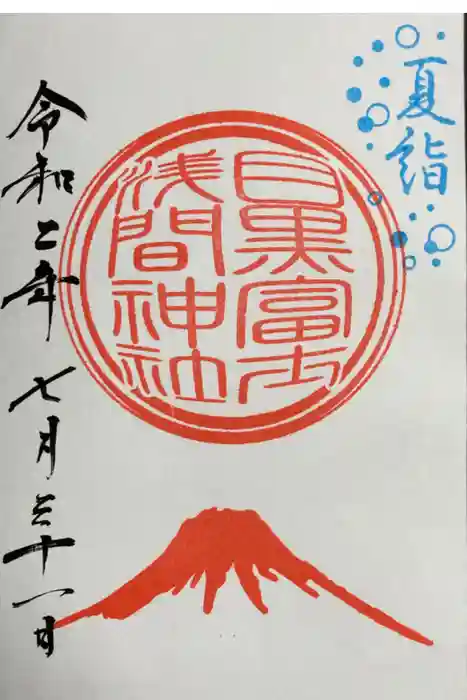 夏詣
目黒富士
浅間神社
令和二年 七月三十一日